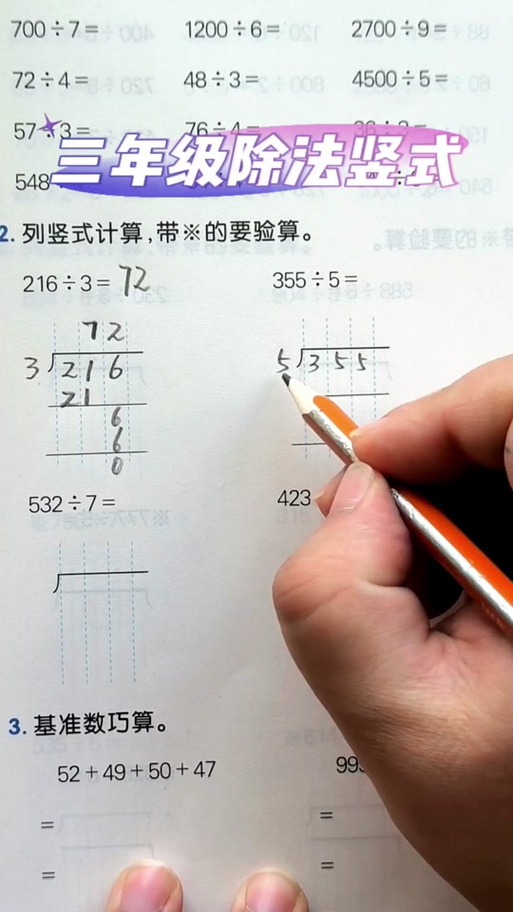 700÷7= 1200÷6= 2700÷9=
72÷4= 48÷3= 4500÷5=
57÷3= 76÷4=
548
三年级除法竖式
2. 列竖式计算,带※的要验算。
216÷3=72 355÷5=
72
3 216 5 355
21
6
6
0
532÷7= 423
3. 基准数巧算。
52+49+50+47 99
= =
= =